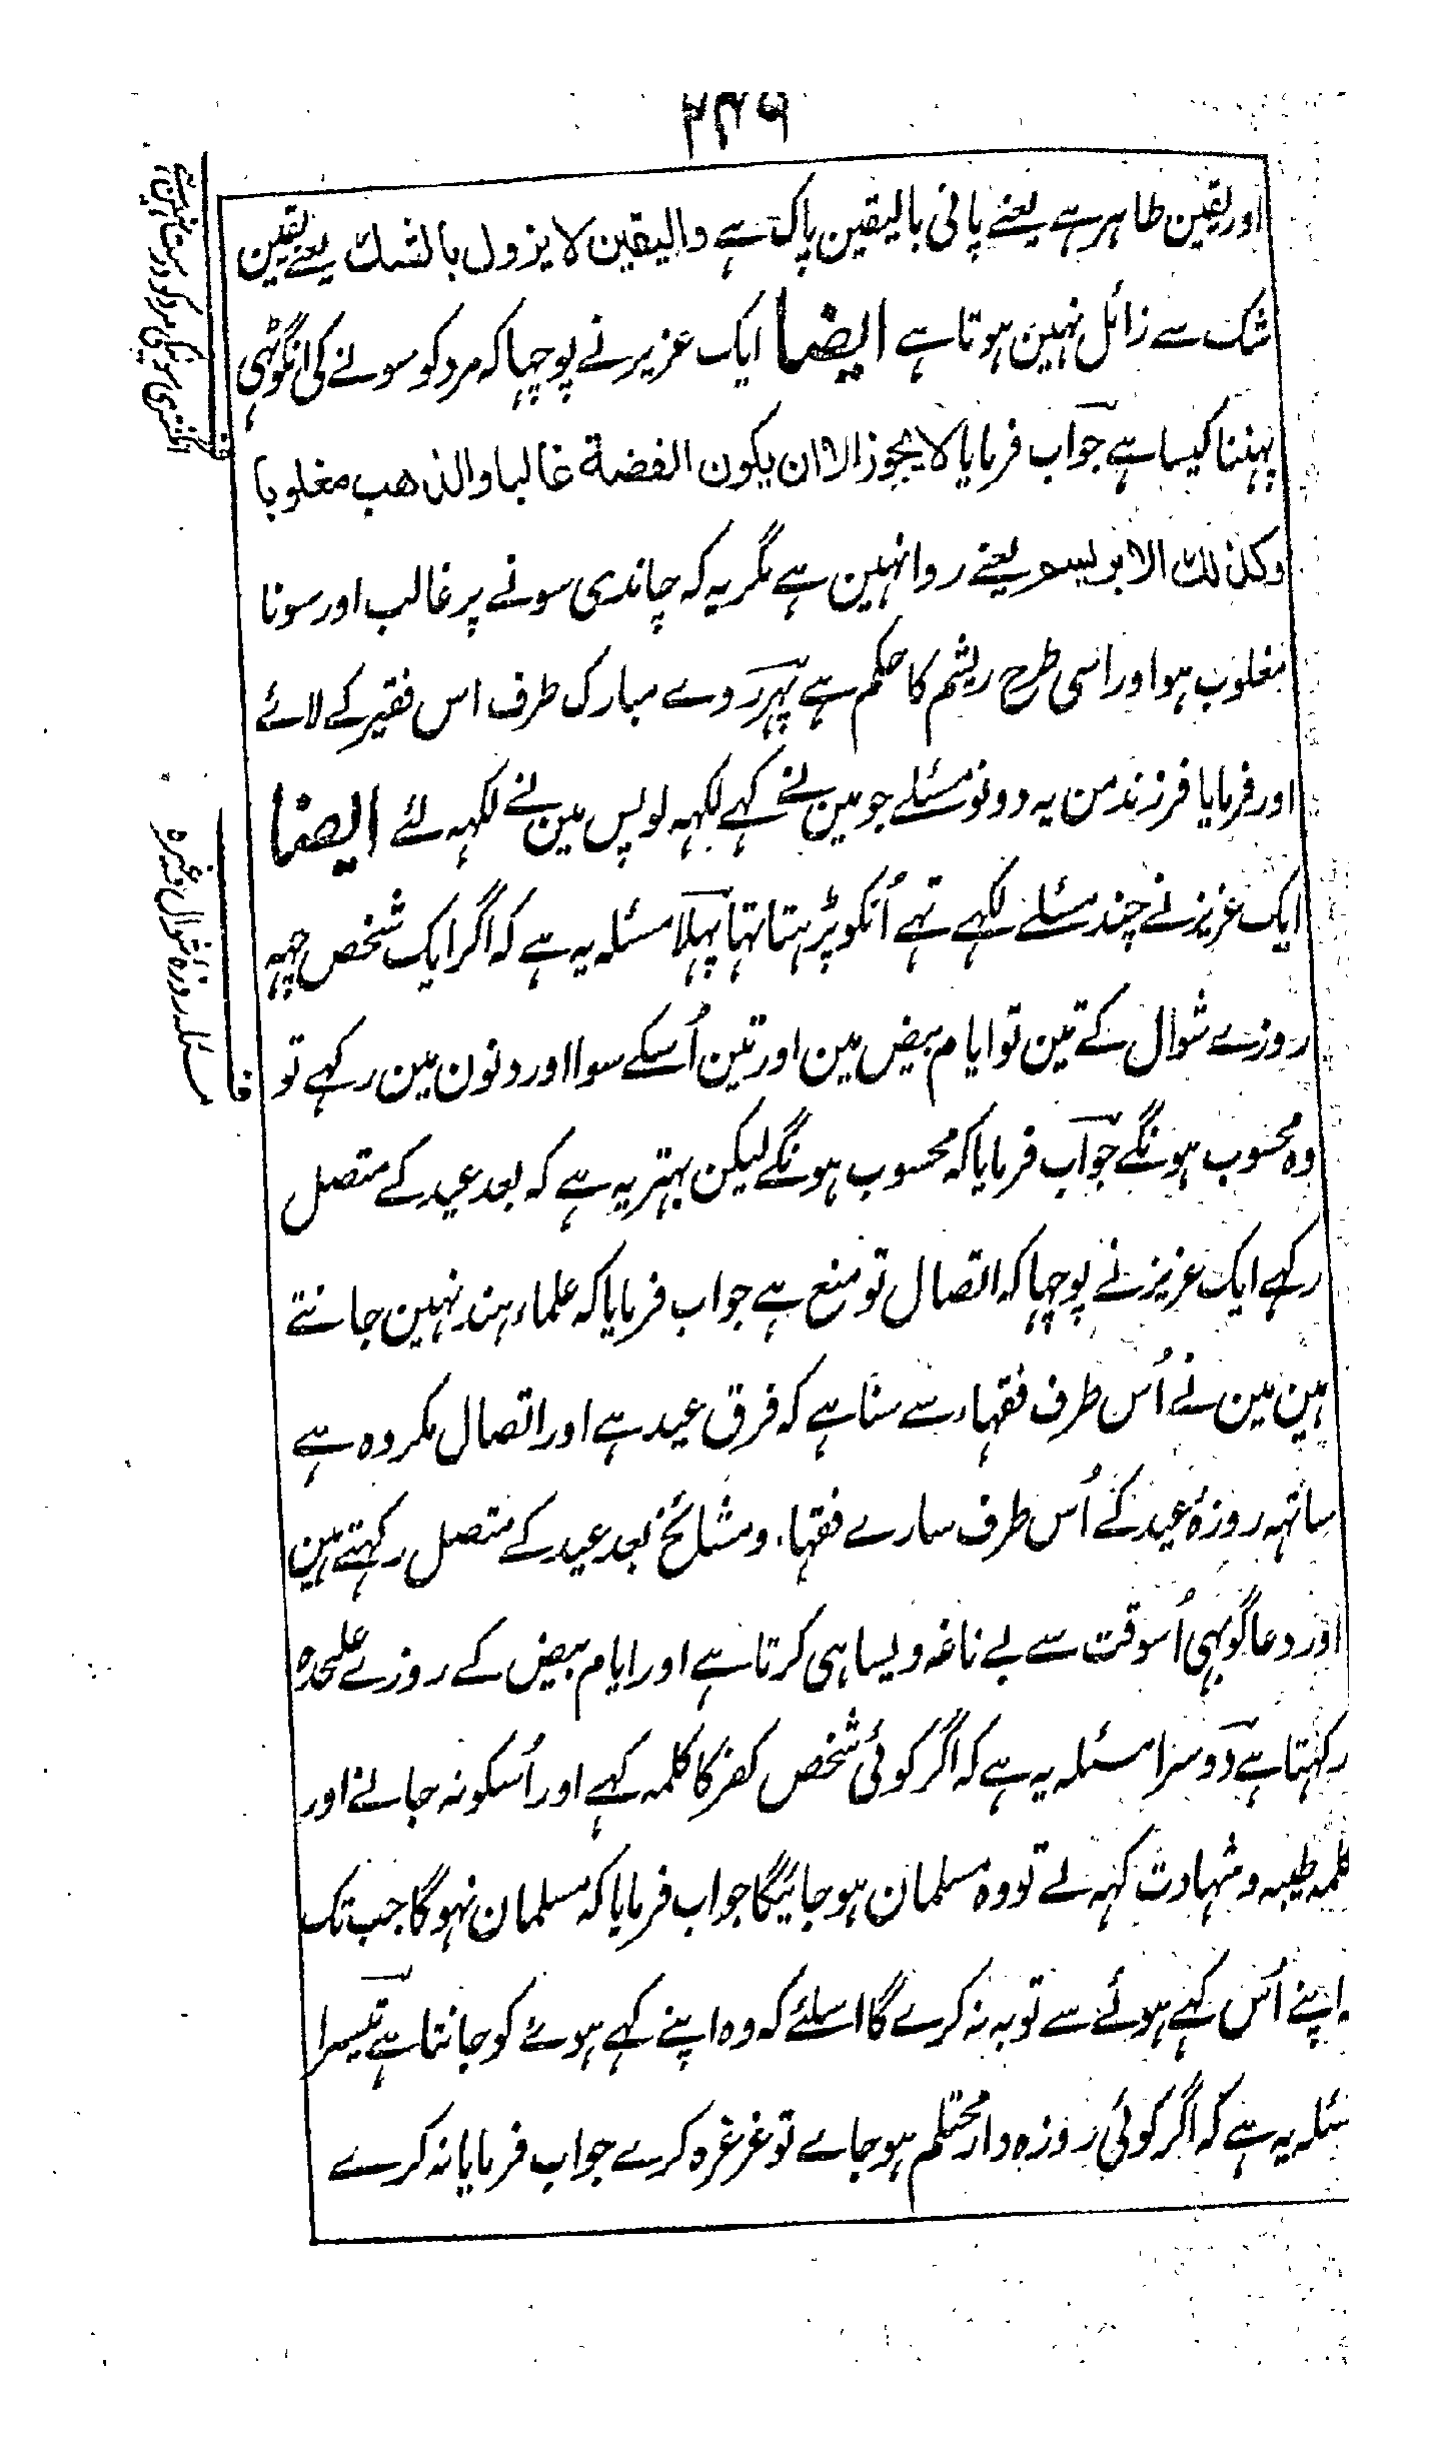 ۲۳۶
اور یقین طاہر ہے یعنے پانی بالیقین پاک ہے والیقین لا یزول بالشك یعنے یقین
شک سے زائل نہین ہوتا ہے ایضا ایک عزیز نے پوچہا کہ مرد کو سونے کی انگوٹہی
پہننا کیسا ہے جواب فرمایا لا یجوز الا ان یکون الفضة غالبا والذهب مغلوبا
وکذلك الابریسم یعنے روا نہین ہے مگر یہ کہ چاندی سونے پر غالب اور سونا
مغلوب ہو اور اسی طرح ریشم کا حکم ہے پہر روے مبارک طرف اس فقیر کے لائے
اور فرمایا فرزند من یہ دونو مسئلے جو مین نے کہے لکہہ لو پس مین نے لکہہ لئے ایضا
ایک عزیز نے چند مسئلے لکہے تہے اُنکو پڑہتا تہا پہلا مسئلہ یہ ہے کہ اگر ایک شخص چہہ
روزے شوال کے تین تو ایام بیض مین اور تین اُسکے سوا اور دنون مین رکہے تو
وہ محسوب ہونگے جواب فرمایا کہ محسوب ہونگے لیکن بہتر یہ ہے کہ بعد عید کے متصل
رکہے ایک عزیز نے پوچہا کہ اتصال تو منع ہے جواب فرمایا کہ علماء ہند نہین جانتے
ہین مین نے اُس طرف فقہاء سے سنا ہے کہ فرق عید ہے اور اتصال مکروہ ہے
ساتہہ روزۂ عید کے اُس طرف سارے فقہاء و مشائخ بعد عید کے متصل رکہتے ہین
اور دعاگو بہی اُسوقت سے بے ناغہ ویسا ہی کرتا ہے اور ایام بیض کے روزے علٰحدہ
رکہتا ہے دوسرا مسئلہ یہ ہے کہ اگر کوئی شخص کفر کا کلمہ کہے اور اُسکو نہ جانے اور
کلمہ طیبہ و شہادت کہہ لے تو وہ مسلمان ہو جائیگا جواب فرمایا کہ مسلمان نہوگا جب تک
اپنے اُس کہے ہوئے سے توبہ نہ کرے گا اسلئے کہ وہ اپنے کہے ہوئے کو جانتا ہے تیسرا
سئلہ یہ ہے کہ اگر کوئی روزہ دار محتلم ہو جاے تو غرغرہ کرے جواب فرمایا نہ کرے
فا
مسئلہ روزہ شوال وغیرہ